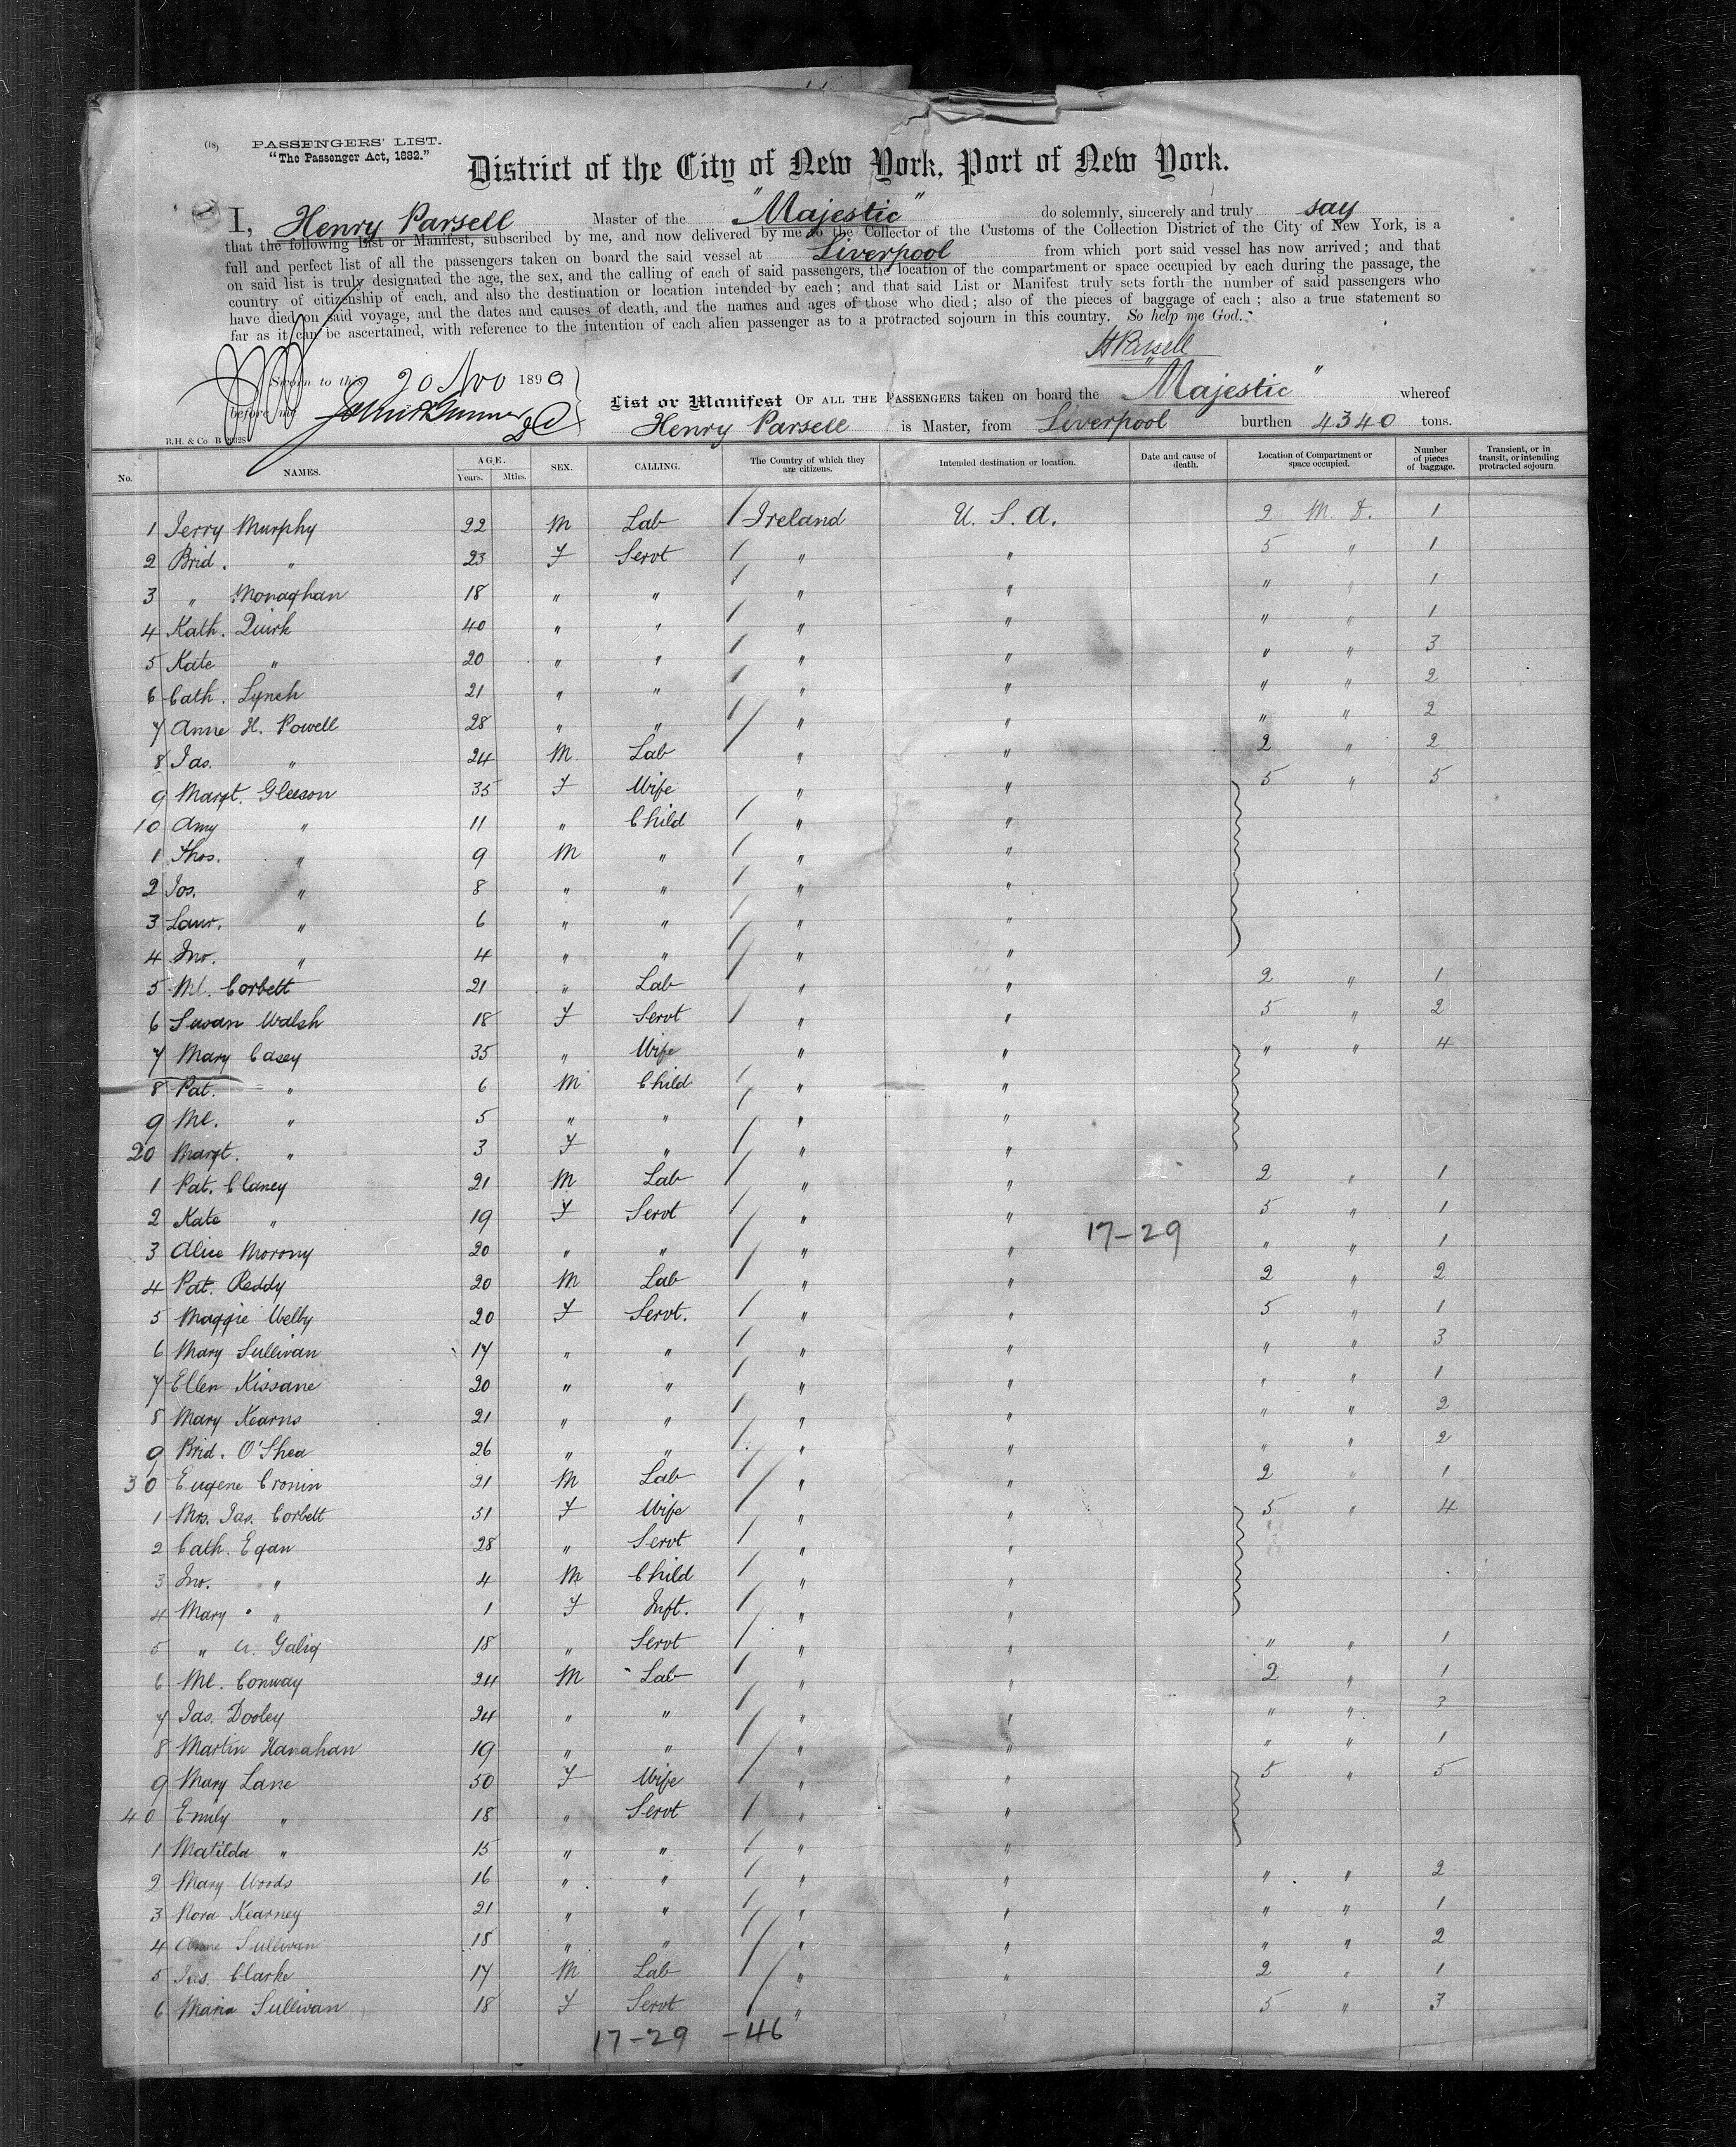 (18)
PASSENGERS' LIST.
"The Passenger Act, 1882."
District of the City of New York, Port of New York.
I, Henry Parsell Master of the "Majestic" do solemnly, sincerely and truly say
that the following List or Manifest, subscribed by me, and now delivered by me to the Collector of the Customs of the Collection District of the City of New York, is a
full and perfect list of all the passengers taken on board the said vessel at Liverpool from which port said vessel has now arrived; and that
on said list is truly designated the age, the sex, and the calling of each of said passengers, the location of the compartment or space occupied by each during the passage, the
country of citizenship of each, and also the destination or location intended by each; and that said List or Manifest truly sets forth the number of said passengers who
have died on said voyage, and the dates and causes of death, and the names and ages of those who died; also of the pieces of baggage of each; also a true statement so
far as it can be ascertained, with reference to the intention of each alien passenger as to a protracted sojourn in this country. So help me God.
H Parsell
Sworn to this 20 Nov 1890
before me
List or Manifest OF ALL THE PASSENGERS taken on board the "Majestic" whereof
Henry Parsell is Master, from Liverpool burthen 4340 tons.
B.H. & Co B
No. NAMES. AGE. Years. Mths. SEX. CALLING. The Country of which they are citizens. Intended destination or location. Date and cause of death. Location of Compartment or space occupied. Number of pieces of baggage. Transient, or in transit, or intending protracted sojourn
1 Jerry Murphy 22 M Lab / Ireland U. S. A. 2 M. D. 1
2 Brid. " 23 F Servt / " " 5 " 1
3 " Monaghan 18 " " / " " " " 1
4 Kath. Quirk 40 " " / " " " " 1
5 Kate " 20 " " / " " " " 3
6 Cath. Lynch 21 " " / " " " " 2
7 Anne H. Powell 28 " " / " " " " 2
8 Jas. " 24 M Lab / " " 2 " 2
9 Margt. Gleeson 35 F Wife " " 5 " 5
10 Amy " 11 " Child / " "
1 Thos. " 9 M " / " "
2 Jos. " 8 " " / " "
3 Lawr. " 6 " " / " "
4 Jno. " 4 " " / " "
5 Ml. Corbett 21 " Lab / " " 2 " 1
6 Susan Walsh 18 F Servt / " " 5 " 2
7 Mary Casey 35 " Wife " " " " 4
8 Pat. " 6 M Child / " "
9 Ml. " 5 " " / " "
20 Margt. " 3 F " / " "
1 Pat. Clancy 21 M Lab / " " 2 " 1
2 Kate " 19 F Servt / " " 5 " 1
17-29
3 Alice Morony 20 " " / " " " " 1
4 Pat. Reddy 20 M Lab / " " 2 " 2
5 Maggie Welby 20 F Servt. / " " 5 " 1
6 Mary Sullivan 17 " " / " " " " 3
7 Ellen Kissane 20 " " / " " " " 1
8 Mary Kearns 21 " " / " " " " 2
9 Brid. O'Shea 26 " " / " " " " 2
30 Eugene Cronin 21 M Lab / " " 2 " 1
1 Mrs. Jas. Corbett 51 F Wife / " " 5 " 4
2 Cath. Egan 28 " Servt / " "
3 Jno. " 4 M Child / " "
4 Mary " 1 F Inft. / " "
5 " 18 " Servt / " " " " 1
6 Ml. Conway 24 M Lab / " " 2 " 1
7 Jas. Dooley 24 " " / " " " " 3
8 Martin Hanahan 19 " " / " " " " 1
9 Mary Lane 50 F Wife / " " 5 " 5
40 Emily " 18 " Servt / " "
1 Matilda " 15 " " / " "
2 Mary Woods 16 " " / " " " " 2
3 Nora Kearney 21 " " / " " " " 1
4 Anne Sullivan 18 " " / " " " " 2
5 Jas. Clarke 17 M Lab / " " 2 " 1
6 Maria Sullivan 18 F Servt / " " 5 " 3
17-29 -46